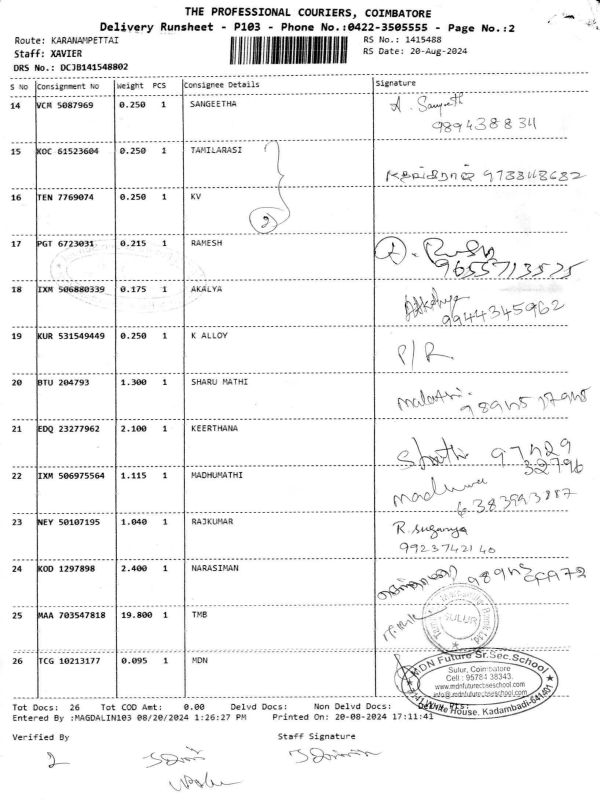 THE PROFESSIONAL COURIERS, COIMBATORE
Delivery Runsheet - P103 - Phone No.:0422-3505555 - Page No.:2
Route: KARANAMPETTAI RS No.: 1415488
Staff: XAVIER RS Date: 20-Aug-2024
DRS No.: DCJB141548802
S No Consignment No Weight PCS Consignee Details Signature
14 VCM 5087969 0.250 1 SANGEETHA
989438834
15 KOC 61523604 0.250 1 TAMILARASI
16 TEN 7769074 0.250 1 KV
2
17 PGT 6723031 0.215 1 RAMESH
9655713575
18 IXM 506880339 0.175 1 AKALYA
9944345962
19 KUR 531549449 0.250 1 K ALLOY P/R
20 BTU 204793 1.300 1 SHARU MATHI
Malathi
21 EDQ 23277962 2.100 1 KEERTHANA
97429
32796
22 IXM 506975564 1.115 1 MADHUMATHI
23 NEY 50107195 1.040 1 RAJKUMAR R. Suganya
9923742140
24 KOD 1297898 2.400 1 NARASIMAN
25 MAA 703547818 19.800 1 TMB
SULUR
26 TCG 10213177 0.095 1 MDN
MDN Future Sr.Sec.School
Sulur, Coimbatore
Cell : 95784 38343.
www.mdnfuturecbseschool.com
info@mdnfuturecbseschool.com
White House, Kadambadi-641401
Tot Docs: 26 Tot COD Amt: 0.00 Delvd Docs: Non Delvd Docs:
Entered By :MAGDALIN103 08/20/2024 1:26:27 PM Printed On: 20-08-2024 17:11:41
Verified By Staff Signature